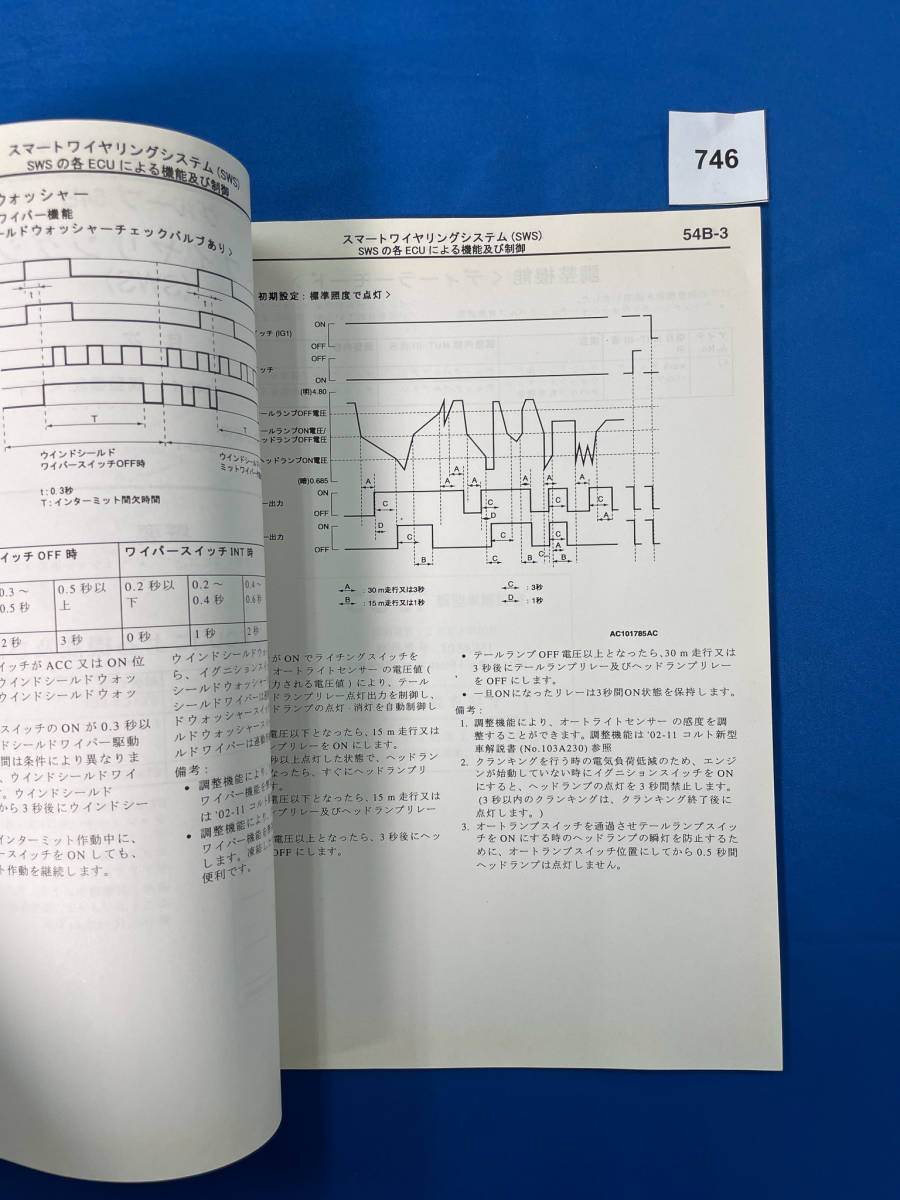 746
スマートワイヤリングシステム (SWS)
SWS の各 ECU による機能及び制御
ウォッシャー
ワイパー機能
ールドウォッシャーチェックバルブあり>
t
t
T
T
ウインドシールド
ワイパースイッチOFF時
t : 0.3秒
T : インターミット間欠時間
イッチ OFF 時
ワイパースイッチ INT 時
0.3 ~
0.5 秒
0.5 秒以
上
0.2 秒以
下
0.2 ~
0.4 秒
0.4~
0.6 秒
2秒
3 秒
0 秒
1 秒
2秒
イッチが ACC 又は ON 位
ウインドシールドウォッ
ウインドシールドウォッ
スイッチの ON が 0.3 秒以
ドシールドワイパー駆動
間は条件により異なりま
、ウインドシールドワイ
。ウインドシールド
から 3 秒後にウインドシー
インターミット作動中に、
ースイッチを ON しても、
ト作動を継続します。
ウインドシールドウォ
ら、イグニションスイ
シールドウォッシャー
シールドワイパーは
ドウォッシャースイ
ルドワイパーは
備考:
• 調整機能により、
ワイパー機能を
は '02-11 コルト
• 調整機能により、
ワイパー機能を
します。凍結
便利です。
スマートワイヤリングシステム (SWS)
SWS の各 ECU による機能及び制御
54B-3
初期設定 : 標準照度で点灯 >
イッチ (IG1)
ON
OFF
ッチ
OFF
ON
(明)4.80
ールランプOFF電圧
ールランプON電圧/
ッドランプOFF電圧
ヘッドランプON電圧
(暗)0.685
ー出力
ON
OFF
ー出力
ON
OFF
A : 30 m走行又は3秒
B : 15 m走行又は1秒
C : 3秒
D : 1秒
AC101785AC
が ON でライチングスイッチを
オートライトセンサー の電圧値 (
力される電圧値 ) により、テール
ドランプリレー点灯出力を制御し、
ドランプの点灯・消灯を自動制御し
電圧以下となったら、15 m 走行又は
ンプリレーを ON にします。
秒以上点灯した状態で、ヘッドラン
なったら、すぐにヘッドランプリ
電圧以下となったら、15 m 走行又は
プリレー及びヘッドランプリレー
電圧以上となったら、3 秒後にヘッ
OFF にします。
• テールランプ OFF 電圧以上となったら、30 m 走行又は
3 秒後にテールランプリレー及びヘッドランプリレー
を OFF にします。
• 一旦ONになったリレーは3秒間ON状態を保持します。
備考:
1. 調整機能により、オートライトセンサー の感度を調
整することができます。調整機能は '02-11 コルト新型
車解説書 (No.103A230) 参照
2. クランキングを行う時の電気負荷低減のため、エンジ
ンが始動していない時にイグニションスイッチを ON
にすると、ヘッドランプの点灯を 3 秒間禁止します。
(3 秒以内のクランキングは、クランキング終了後に
点灯します。)
3. オートランプスイッチを通過させテールランプスイッ
チを ON にする時のヘッドランプの瞬灯を防止するた
めに、オートランプスイッチ位置にしてから 0.5 秒間
ヘッドランプは点灯しません。